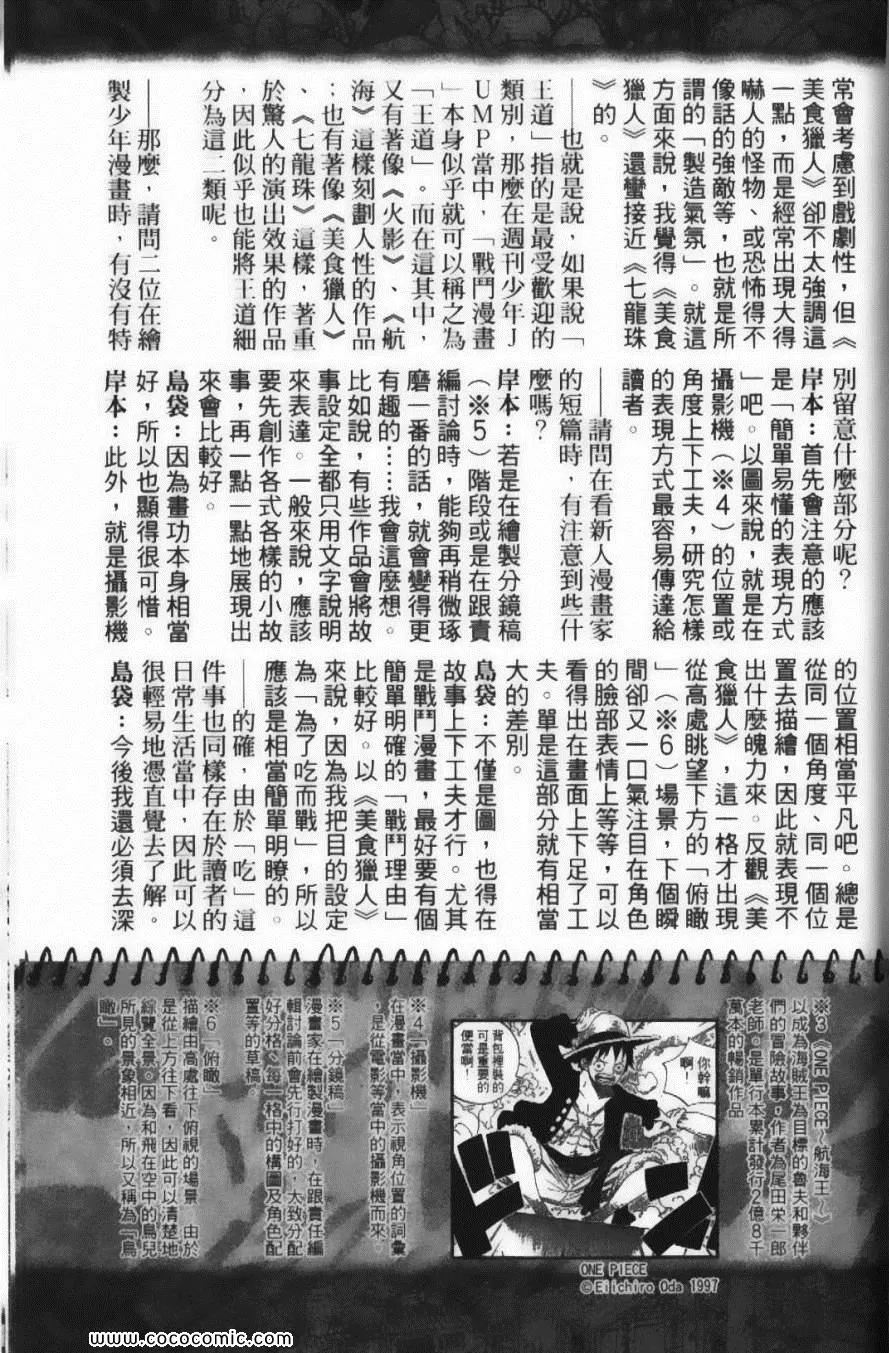 常會考慮到戲劇性，但《
美食獵人》卻不太強調這
一點，而是經常出現大得
嚇人的怪物、或恐怖得不
像話的強敵等，也就是所
謂的「製造氣氛」。就這
方面來說，我覺得《美食
獵人》還蠻接近《七龍珠
》的。
——也就是說，如果說「
王道」指的是最受歡迎的
類別，那麼在週刊少年J
UMP當中，「戰鬥漫畫
」本身似乎就可以稱之為
「王道」。而在這其中，
又有著像《火影》、《航
海》這樣刻劃人性的作品
；也有著像《美食獵人》
、《七龍珠》這樣，著重
於驚人的演出效果的作品
，因此似乎也能將王道細
分為這二類呢。
——那麼，請問二位在繪
製少年漫畫時，有沒有特
別留意什麼部分呢？
岸本：首先會注意的應該
是「簡單易懂的表現方式
」吧。以圖來說，就是在
攝影機（※4）的位置或
角度上下工夫，研究怎樣
的表現方式最容易傳達給
讀者。
——請問在看新人漫畫家
的短篇時，有注意到些什
麼嗎？
岸本：若是在繪製分鏡稿
（※5）階段或是在跟責
編討論時，能夠再稍微琢
磨一番的話，就會變得更
有趣的……我會這麼想。
比如說，有些作品會將故
事設定全都只用文字說明
來表達。一般來說，應該
要先創作各式各樣的小故
事，再一點一點地展現出
來會比較好。
島袋：因為畫功本身相當
好，所以也顯得很可惜。
岸本：此外，就是攝影機
的位置相當平凡吧。總是
從同一個角度、同一個位
置去描繪，因此就表現不
出什麼魄力來。反觀《美
食獵人》，這一格才出現
從高處眺望下方的「俯瞰
」（※6）場景，下個瞬
間卻又一口氣注目在角色
的臉部表情上等等，可以
看得出在畫面上下足了工
夫。單是這部分就有相當
大的差別。
島袋：不僅是圖，也得在
故事上下工夫才行。尤其
是戰鬥漫畫，最好要有個
簡單明確的「戰鬥理由」
比較好。以《美食獵人》
來說，因為我把目的設定
為「為了吃而戰」，所以
應該是相當簡單明瞭的。
——的確，由於「吃」這
件事也同樣存在於讀者的
日常生活當中，因此可以
很輕易地憑直覺去了解。
島袋：今後我還必須去深
※3《ONE PIECE～航海王～》
以成為海賊王為目標的魯夫和夥伴
們的冒險故事，作者為尾田栄一郎
老師。是單行本累計發行2億8千
萬本的暢銷作品
你幹嘛
啊！
背包裡裝的
可是重要的
便當啊！
ONE PIECE
©Eiichiro Oda 1997
※4「攝影機」
在漫畫當中，表示視角位置的詞彙
，是從電影等當中的攝影機而來。
※5「分鏡稿」
漫畫家在繪製漫畫時，在跟責任編
輯討論前會先行打好的，大致分配
好分格、每一格中的構圖及角色配
置等的草稿。
※6「俯瞰」
描繪由高處往下俯視的場景 由於
是從上方往下看，因此可以清楚地
綜覽全景。因為和飛在空中的鳥兒
所見的景象相近，所以又稱為「鳥
瞰」。
http://www.cococomic.com/
http://www.cococomic.com/